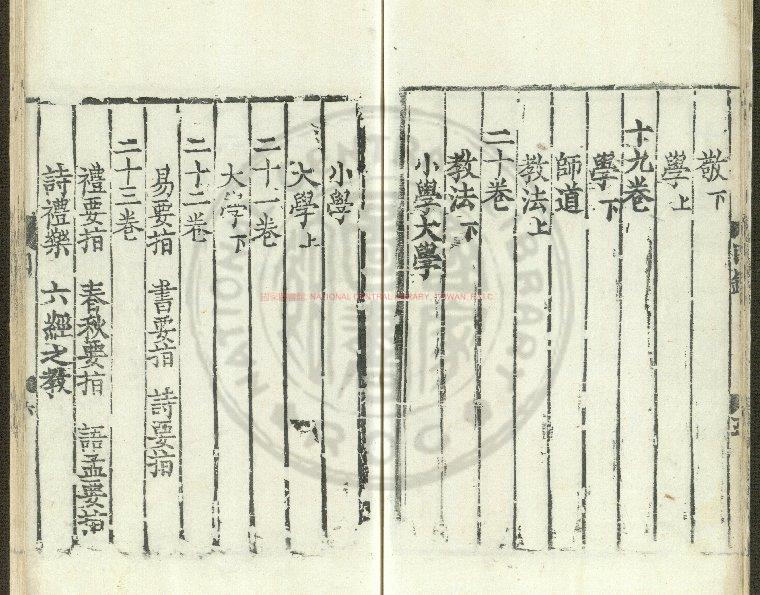 敬下
學上
十九卷
學下
師道
教法上
二十卷
教法下
小學大學
小學
大學上
二十一卷
大学下
二十二卷
易要指 書要指 詩要指
二十三卷
禮要指 春秋要指 語孟要指
詩禮樂 六經之教
國家圖書館 NATIONAL CENTRAL LIBRARY, TAIWAN, R.O.C